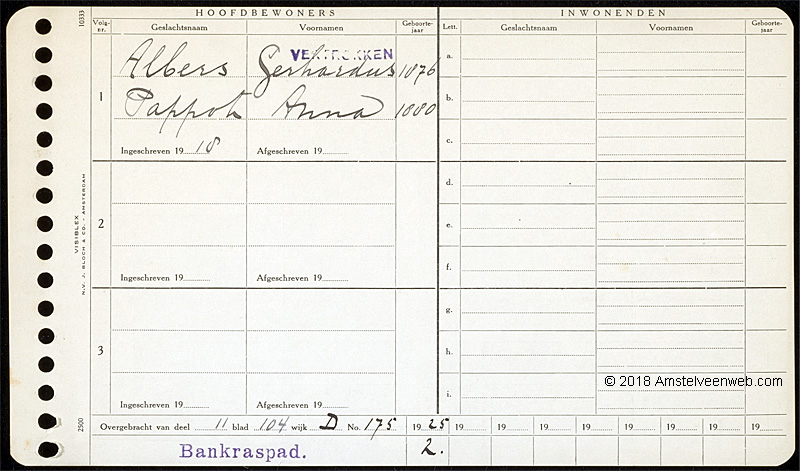 HOOFDBEWONERS INWONENDEN
Volg-nr. Geslachtsnaam Voornamen Geboorte-jaar Lett. Geslachtsnaam Voornamen Geboorte-jaar
10333
VERTROKKEN
Albers Gerhardus 1876 a.
1 Pappot Anna 1880 b.
Ingeschreven 19 18 Afgeschreven 19 c.
d.
2 e.
Ingeschreven 19 Afgeschreven 19 f.
VISIBLEX
N.V. J. BLOCH & CO. - AMSTERDAM
g.
3 h.
© 2018 Amstelveenweb.com
Ingeschreven 19 Afgeschreven 19 i.
2500
Overgebracht van deel 11 blad 104 wijk D No. 175 1925 19 19 19 19 19 19 19 19
Bankraspad. 2.